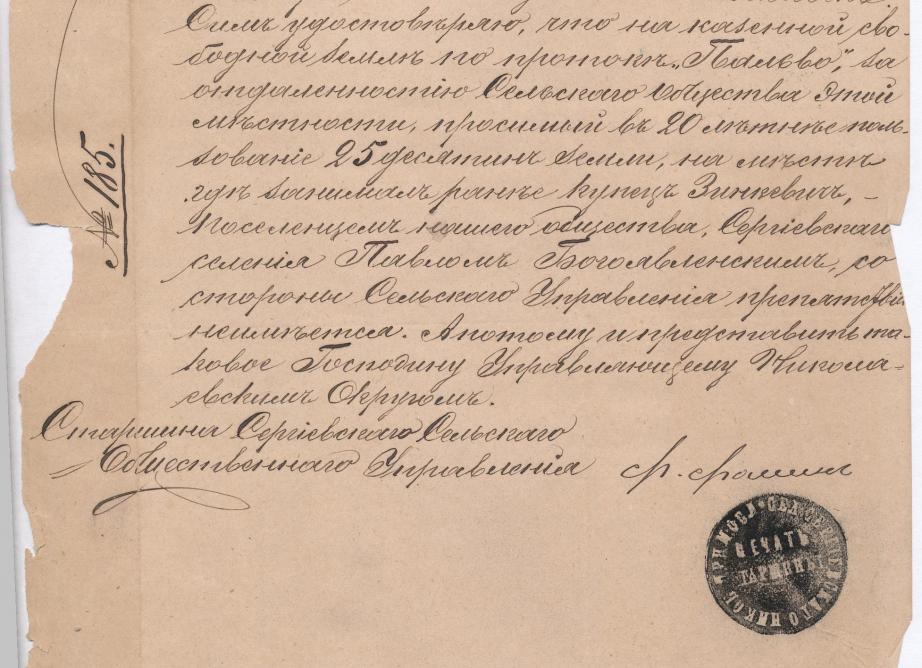 Симъ удостовѣряю, что на казенной сво-
бодной землѣ по протокѣ „Пальво", за
отдаленностію Сельскаго Общества этой
мѣстности, просимый въ 20 лѣтнѣе поль-
зованіе 25 десятинъ земли, на мѣстѣ
гдѣ занималъ ранѣе купецъ Зинкевичъ, –
Поселенцемъ нашего общества, Сергіевскаго
селенія Павломъ Богоявленскимъ, со
стороны Сельскаго Управленія препятствій
неимѣется. Апотому и представить та-
ковое Господину Управляющему Никола-
евскимъ Округомъ.
№ 185.
Старшина Сергіевскаго Сельскаго
Общественнаго Управленія Ф. Фомин
ПЕЧАТЬ